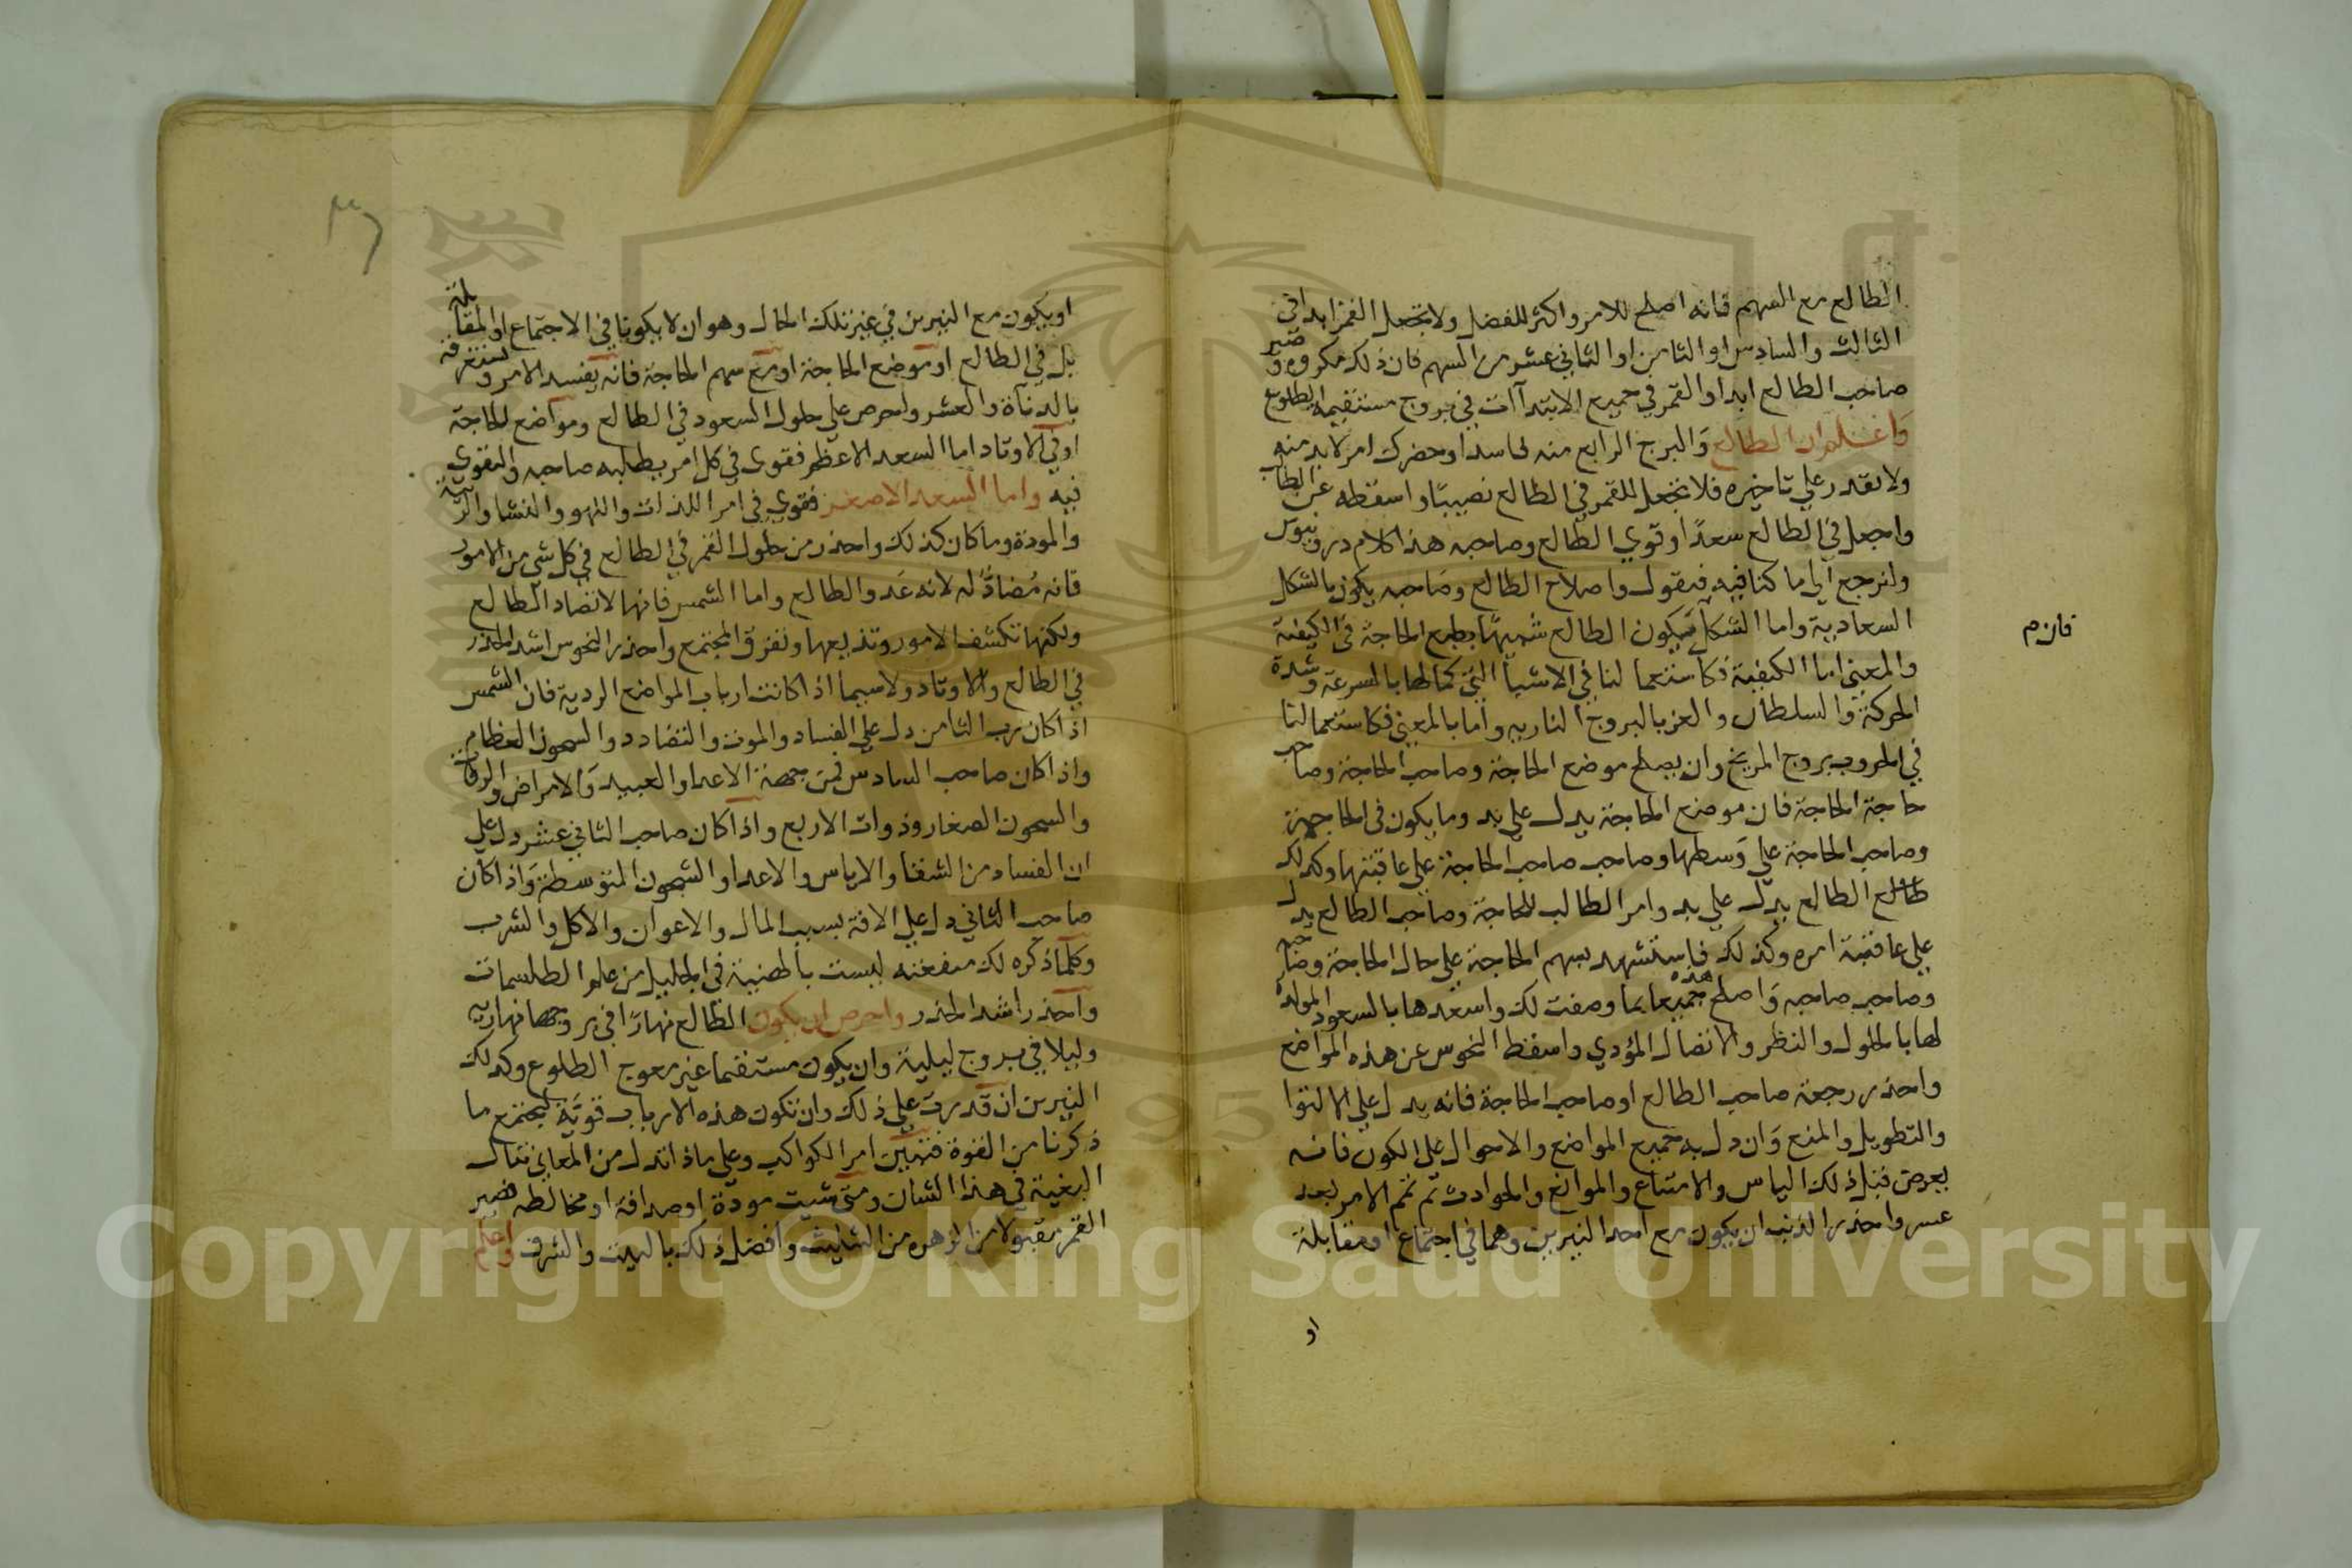 الطالع مع السهم فانه اصلح للامر واكثر للفضل ولا تجعل القمر ابدا في
الثالث والسادس او الثامن او الثاني عشر من السهم فان ذلك مكروه وصير
صاحب الطالع ابدا والقمر في جميع الابتداآت في بروج مستقيمة الطلوع
والبرج الرابع منه لحاسد او حضرك امر لابد منه
ولا تقدر علي تاخيره فلا تجعل للقمر في الطالع نصيبًا واسقطه عن الطالع
واجعل في الطالع سعدًا وقوي الطالع وصاحبه هذا كلام دروتيوس
ولنرجع الي ما كنا فيه فنقول واصلاح الطالع وصاحبه يكون بالشكل
السعادية واما الشكل فيكون الطالع شبيهًا بطبع الحاجة في الكيفية
فان م
والمعني اما الكيفية فكاستعما لنا في الاشيا التي كمالها بالسرعة وشدة
الحركة والسلطان والعز بالبروج الناريه واما بالمعني فكاستعمالنا
في الحروب بروج المريخ وان يصلح موضع الحاجة وصاحب الحاجة وصاحب
حاجة الحاجة فان موضع الحاجة يدل علي بد وما يكون في الحاجة
وصاحب الحاجة علي وسطها وصاحب صاحب الحاجة علي عاقبتها وكذلك
طالع الطالع يدل علي بد وامر الطالب للحاجة وصاحب الطالع يدل
علي عاقبة امره وكذلك فاستشهد بسهم الحاجة علي حال الحاجة وصاحبه
وصاحب صاحبه واصلح هذه جميعا بما وصفت لك واسعدها بالسعود المولدة
لها بالحلول والنظر والاتصال المؤدي واسقط النحوس عن هذه المواضع
واحذر رجعة صاحب الطالع او صاحب الحاجة فانه يدل علي الالتوا
والتطويل والمنع وان دل به جميع المواضع والاحوال علي الكون فانه
يعرض قبل ذلك الياس والامتناع والموانع والحوادث ثم تتم الامر بعد
عسر واحذر الذنب ان يكون مع احد النيرين وهما في اجتماع او مقابلة
او
او يكون مع النيرين في غير تلك الحال وهو ان لا يكونا في الاجتماع او المقابلة
بل في الطالع او موضع الحاجة او مع سهم الحاجة فانه يفسد الامر
بالدنآة والعشر واحرص علي حلول السعود في الطالع ومواضع الحاجة
او في الاوتاد اما السعد الاعظم فقوي في كل امر يطلبه صاحبه والتقوي
فيه واما السعد الاصغر فقوي في امر اللذات واللهو والنسا والزينة
والمودة وما كان كذلك واحذر من حلول القمر في الطالع في كل شي من الامور
فانه مُضادٌ له لانه عدو الطالع واما الشمس فانها لا تضاد الطالع
ولكنها تكشف الامور وتذيعها وتفرق المجتمع واحذر النحوس اشد الحذر
في الطالع والاوتاد ولاسيما اذا كانت ارباب المواضع الردية فان الشمس
اذا كان رب الثامن دل علي الفساد والموت والتضادد والسجون العظام
واذا كان صاحب السادس فمن جهة الاعدا والعبيد والامراض
والسجون الصغار وذوات الاربع واذا كان صاحب الثاني عشر دل علي
ان الفساد من الشقا والاياس والاعدا والسجون المتوسطة واذا كان
صاحب الثاني دل علي الافة بسبب المال والاعوان والاكل والشرب
وكلما ذكره لك منفعته ليست بالهينة في الجليل من علم الطلسمات
واحذر اشد الحذر واحرص ان يكون الطالع نهارًا في بروجها نهاريه
وليلا في بروج ليلية وان يكون مستقيما غير معوج الطلوع وكذلك
النيرين ان قدرت علي ذلك وان تكون هذه الارباب قوية ليجتمع ما
ذكرنا من القوة فتبين امر الكواكب وعلي ماذا تدل من المعاني تنال
البغية في هذا الشان ومتي شيت مودة او صداقة او مخالطة فصير
القمر مقبولا من الزهره من التثليث وافضل ذلك بالبيت والشرف واعلم